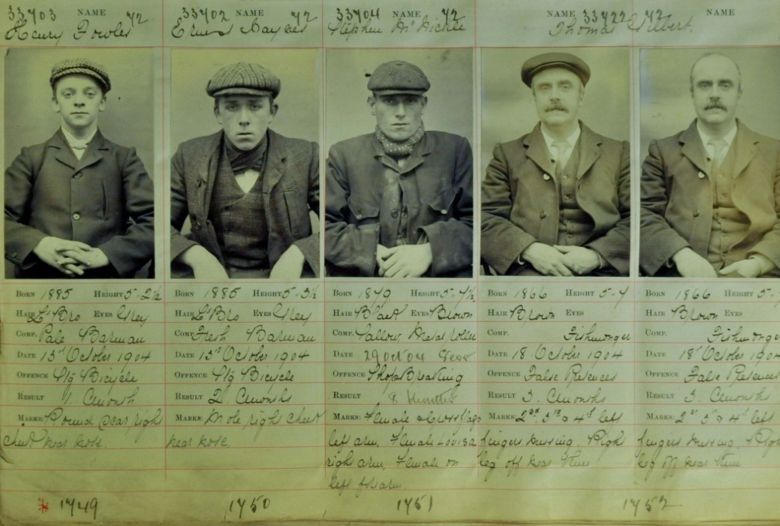 33703 NAME 72 33702 NAME 72 33704 NAME 72 NAME 33722 72 NAME
Henry Fowler
Stephen
Thomas
BORN 1885 HEIGHT 5-2½
HAIR Lt Bro EYES Grey
COMP. Pale Barman
DATE 15th October 1904
OFFENCE Stg Bicycle
RESULT 1 Cmonth
MARKS: Round scar right
cheek near nose
1749
BORN 1885 HEIGHT 5-3½
HAIR Lt Bro EYES Grey
COMP. Fresh Barman
DATE 15th October 1904
OFFENCE Stg Bicycle
RESULT 2 Cmonths
MARKS: Mole right cheek
near nose
1750
BORN 1879 HEIGHT 5-4½
HAIR Black EYES Brown
COMP. Sallow
DATE 29 Oct 04
OFFENCE Shop Breaking
RESULT
MARKS: Female
left arm, Female Louisa
right arm, Female on
left f'arm
1751
BORN 1866 HEIGHT 5-4
HAIR Brown EYES
COMP. Fishmonger
DATE 18 October 1904
OFFENCE False Pretences
RESULT 3. Cmonths
MARKS: 2nd 3rd & 4th left
fingers missing. Right
leg off near
BORN 1866 HEIGHT 5-4
HAIR Brown EYES
COMP. Fishmonger
DATE 18 October 1904
OFFENCE False Pretences
RESULT 3. Cmonths
MARKS: 2nd 3 & 4th left
fingers missing. Right
leg off near
1752